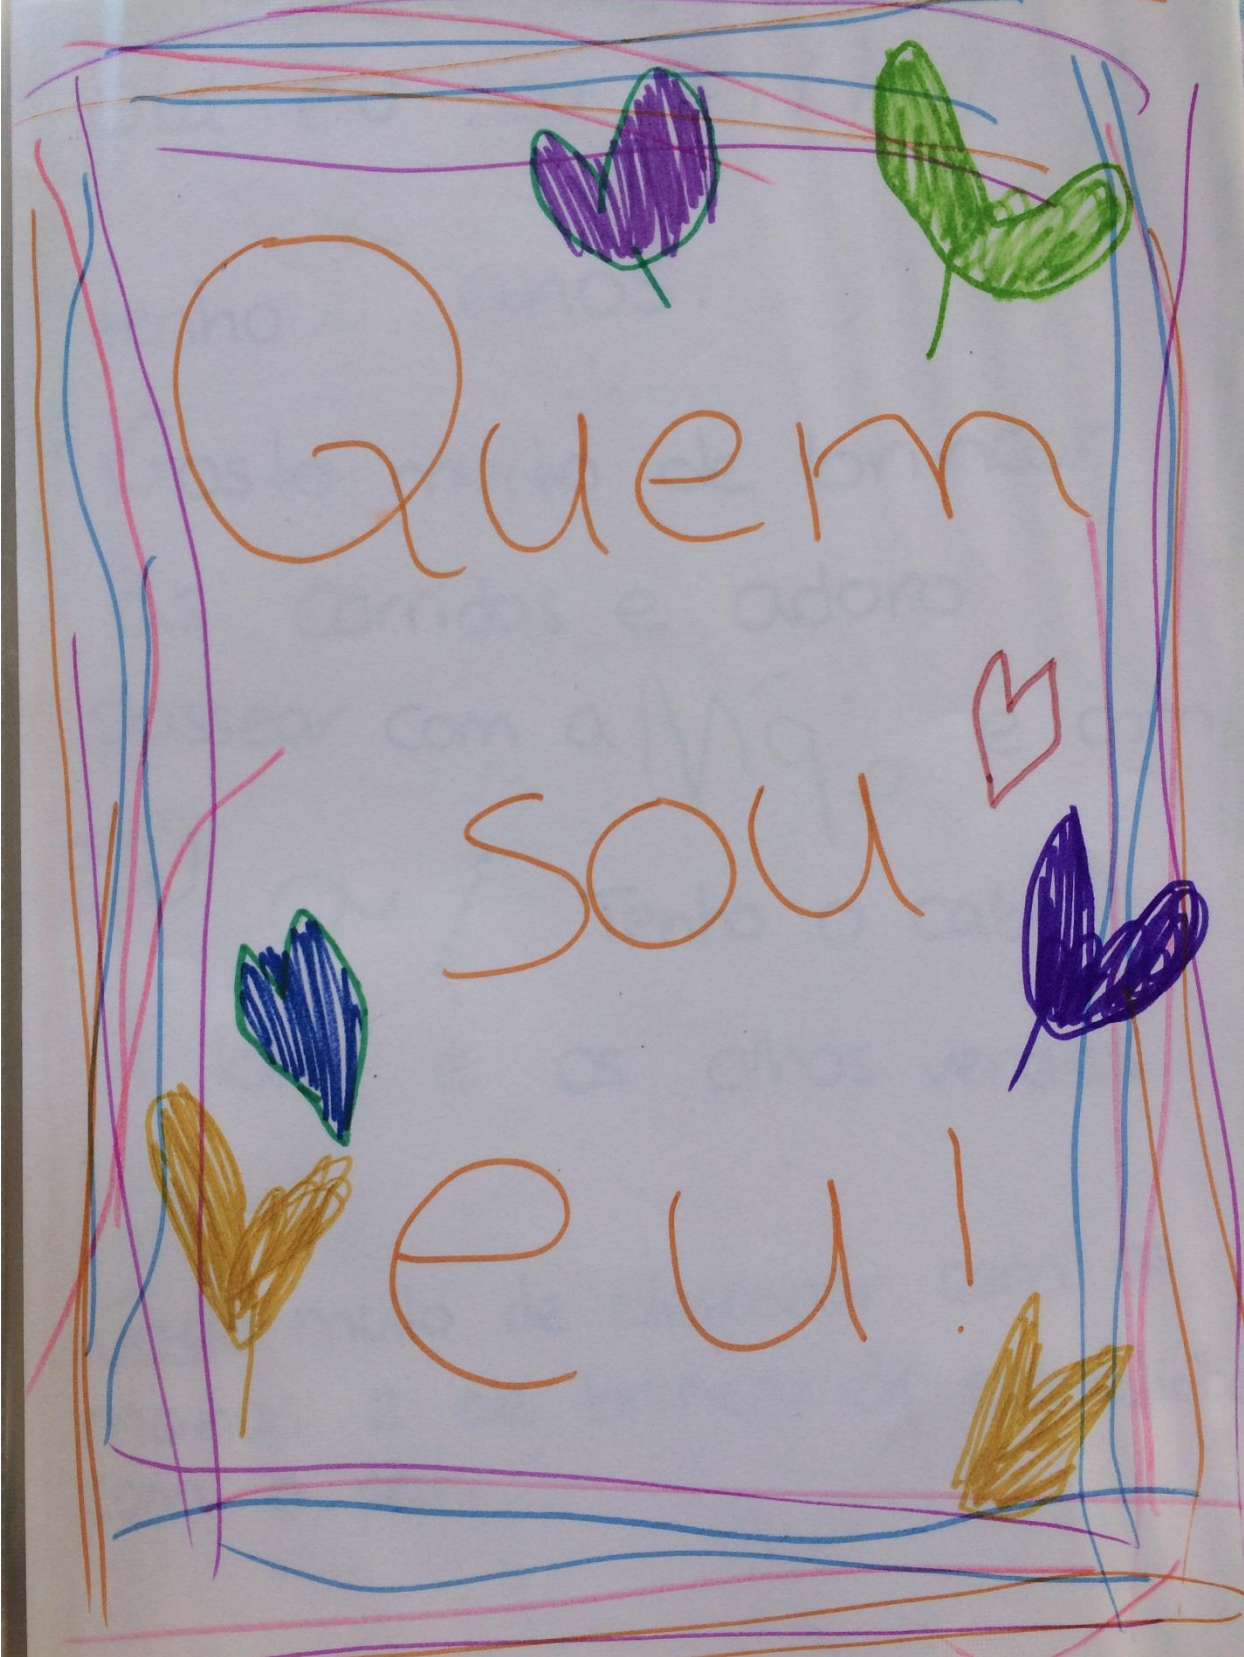 Quem
sou
eu!